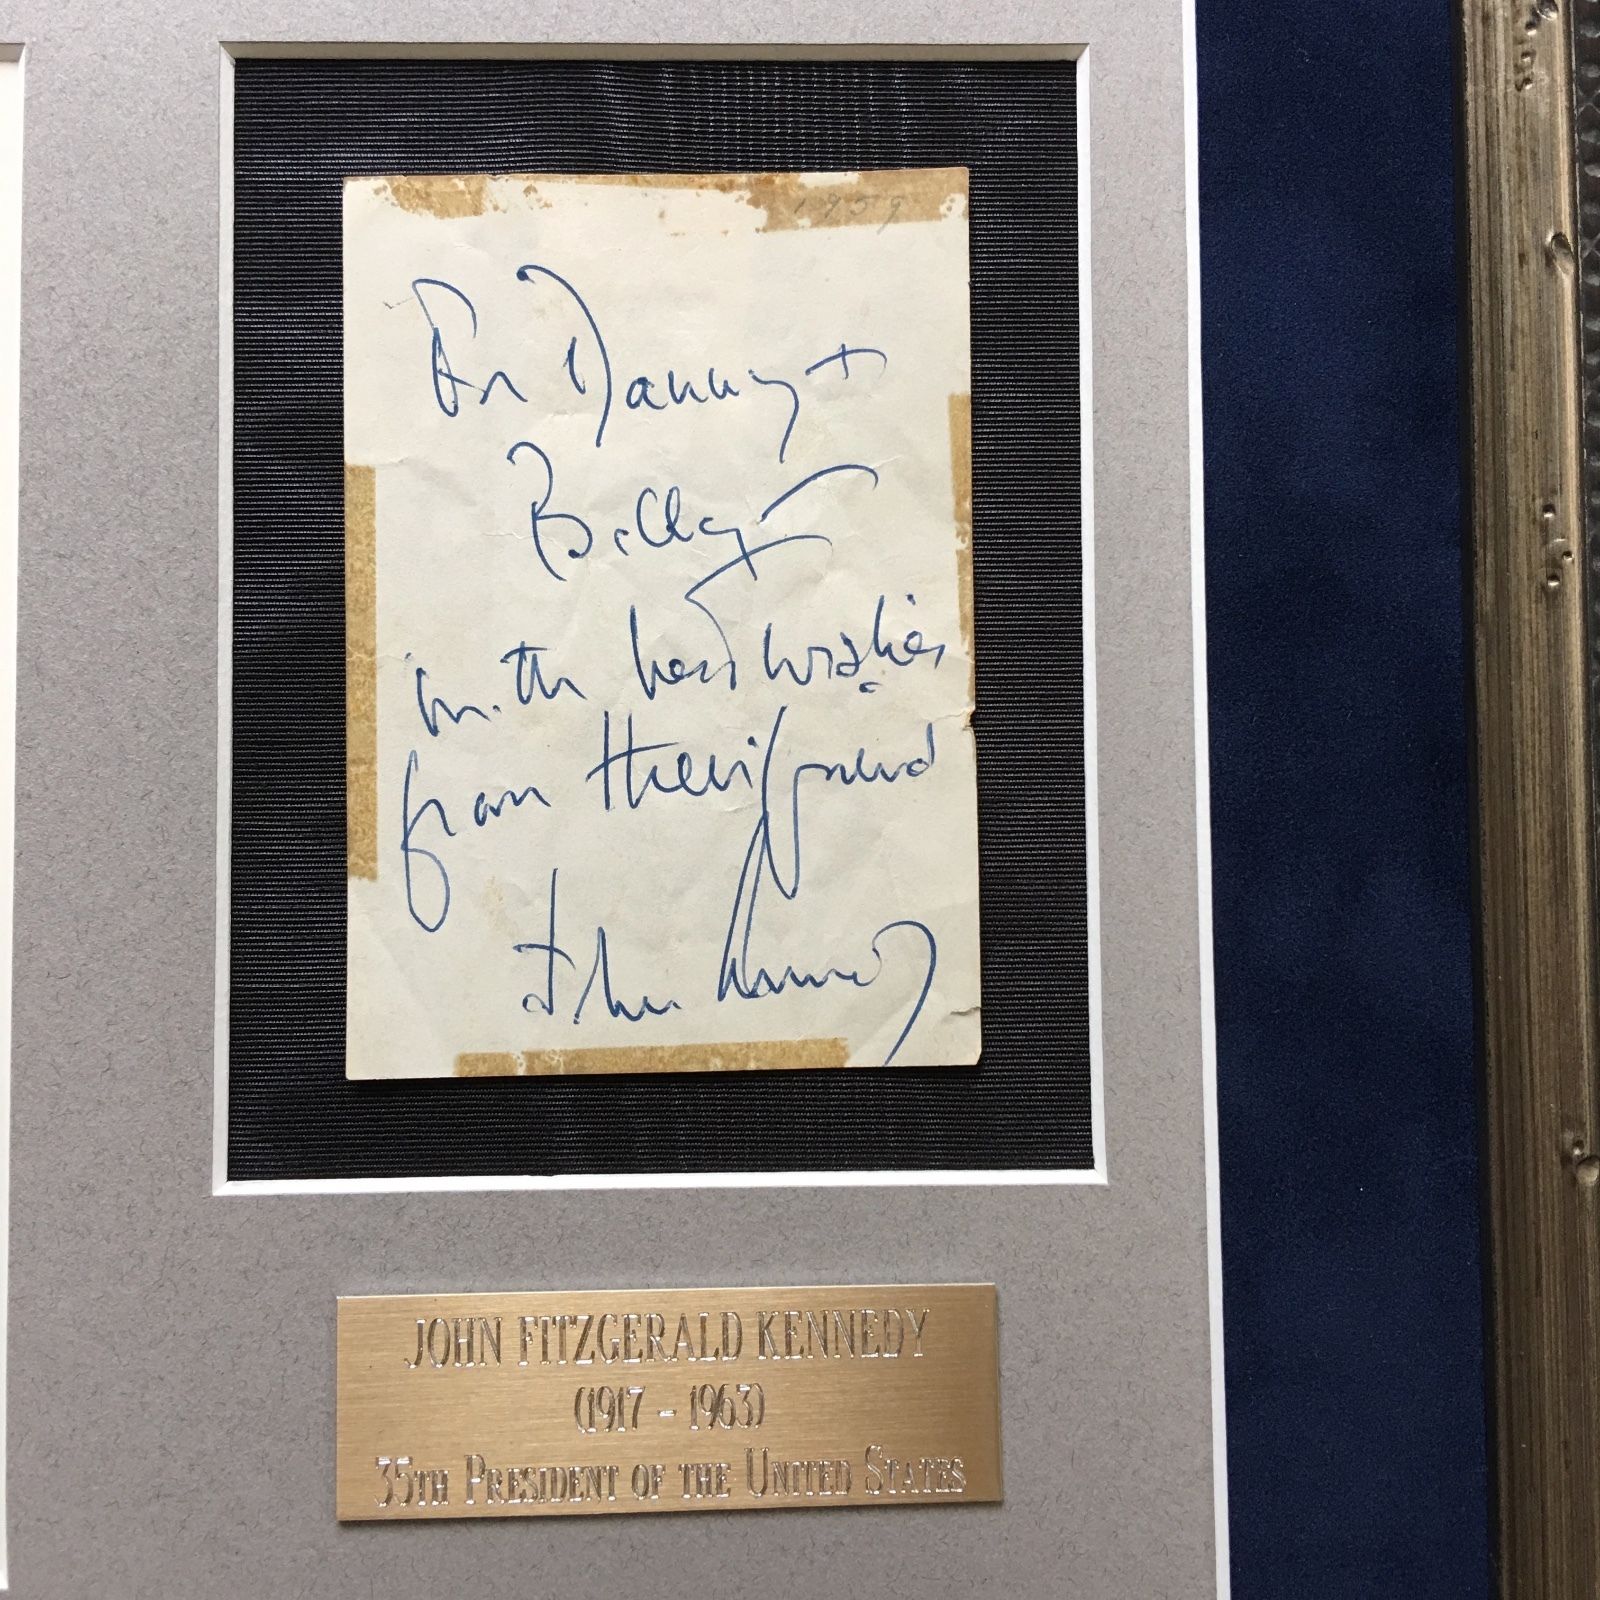 1959
For Danny +
Billy
with best wishes
from their friend
John Kennedy
JOHN FITZGERALD KENNEDY
(1917 - 1963)
35TH PRESIDENT OF THE UNITED STATES